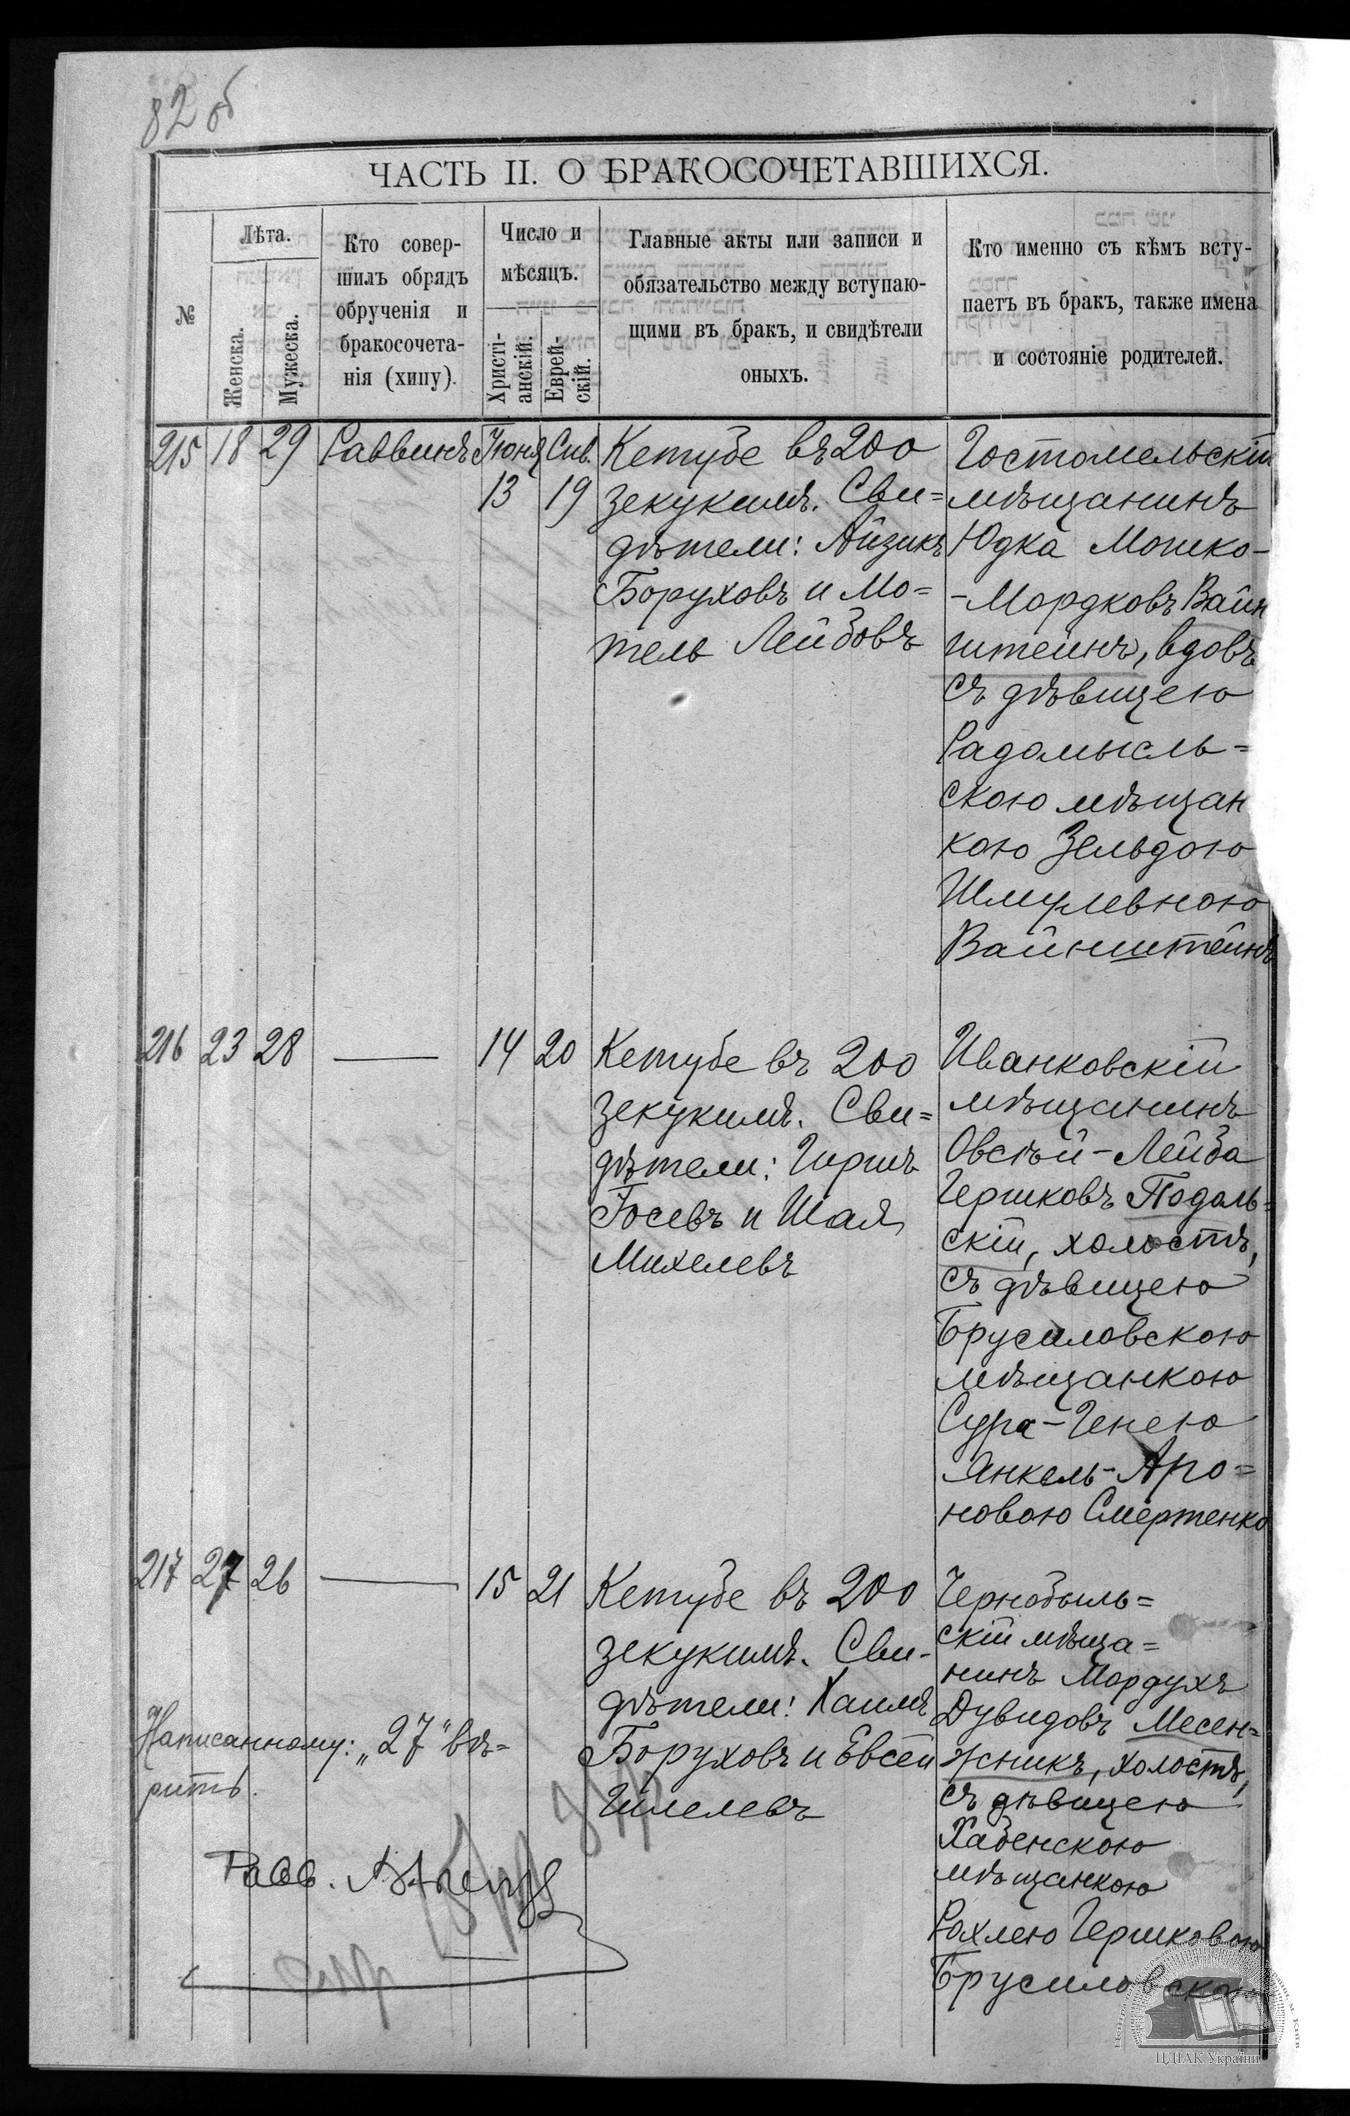 82 об
ЧАСТЬ II. О БРАКОСОЧЕТАВШИХСЯ.
№
Лѣта.
Женска.
Мужеска.
Кто совер-
шилъ обрядъ
обрученія и
бракосочета-
нія (хипу).
Число и
мѣсяцъ.
Христі-
анскій.
Еврей-
скій.
Главные акты или записи и
обязательство между вступаю-
щими въ бракъ, и свидѣтели
оныхъ.
Кто именно съ кѣмъ всту-
паетъ въ бракъ, также имена
и состояніе родителей.
215 18 29 Раввинъ Іюня Сив.
13 19
Кетубе въ 200
зекукимъ. Сви=
дѣтели: Айзикъ
Боруховъ и Мо=
тель Лейбовъ
Гостомельскій
мѣщанинъ
Юдка Мошко-
-Мордковъ Вайн
штейнъ, вдовъ
съ дѣвицею
Радомысль=
скою мѣщан
кою Зельдою
Шмулевною
Вайнштейнъ
216 23 28 — 14 20
Кетубе въ 200
зекукимъ. Сви=
дѣтели: Гершъ
Іосевъ и Шая
Михелевъ
Иванковскій
мѣщанинъ
Овсѣй-Лейба
Гершковъ Подоль=
скій, холостъ,
съ дѣвицею
Брусиловскою
мѣщанкою
Сура-Генею
Янкель-Аро=
новою Смертенко
217 27 26 — 15 21
Кетубе въ 200
зекукимъ. Сви-
дѣтели: Хаимъ
Боруховъ и Евсей
Гилелевъ
Чернобыль=
скій мѣща=
нинъ Мордухъ
Дувидовъ Месен=
жникъ, холостъ,
съ дѣвицею
Хабенскою
мѣщанкою
Рохлею Гершковою
Брусиловскою
Написанному: „27" вѣ=
рить.
Равв.
ЦДІАК України